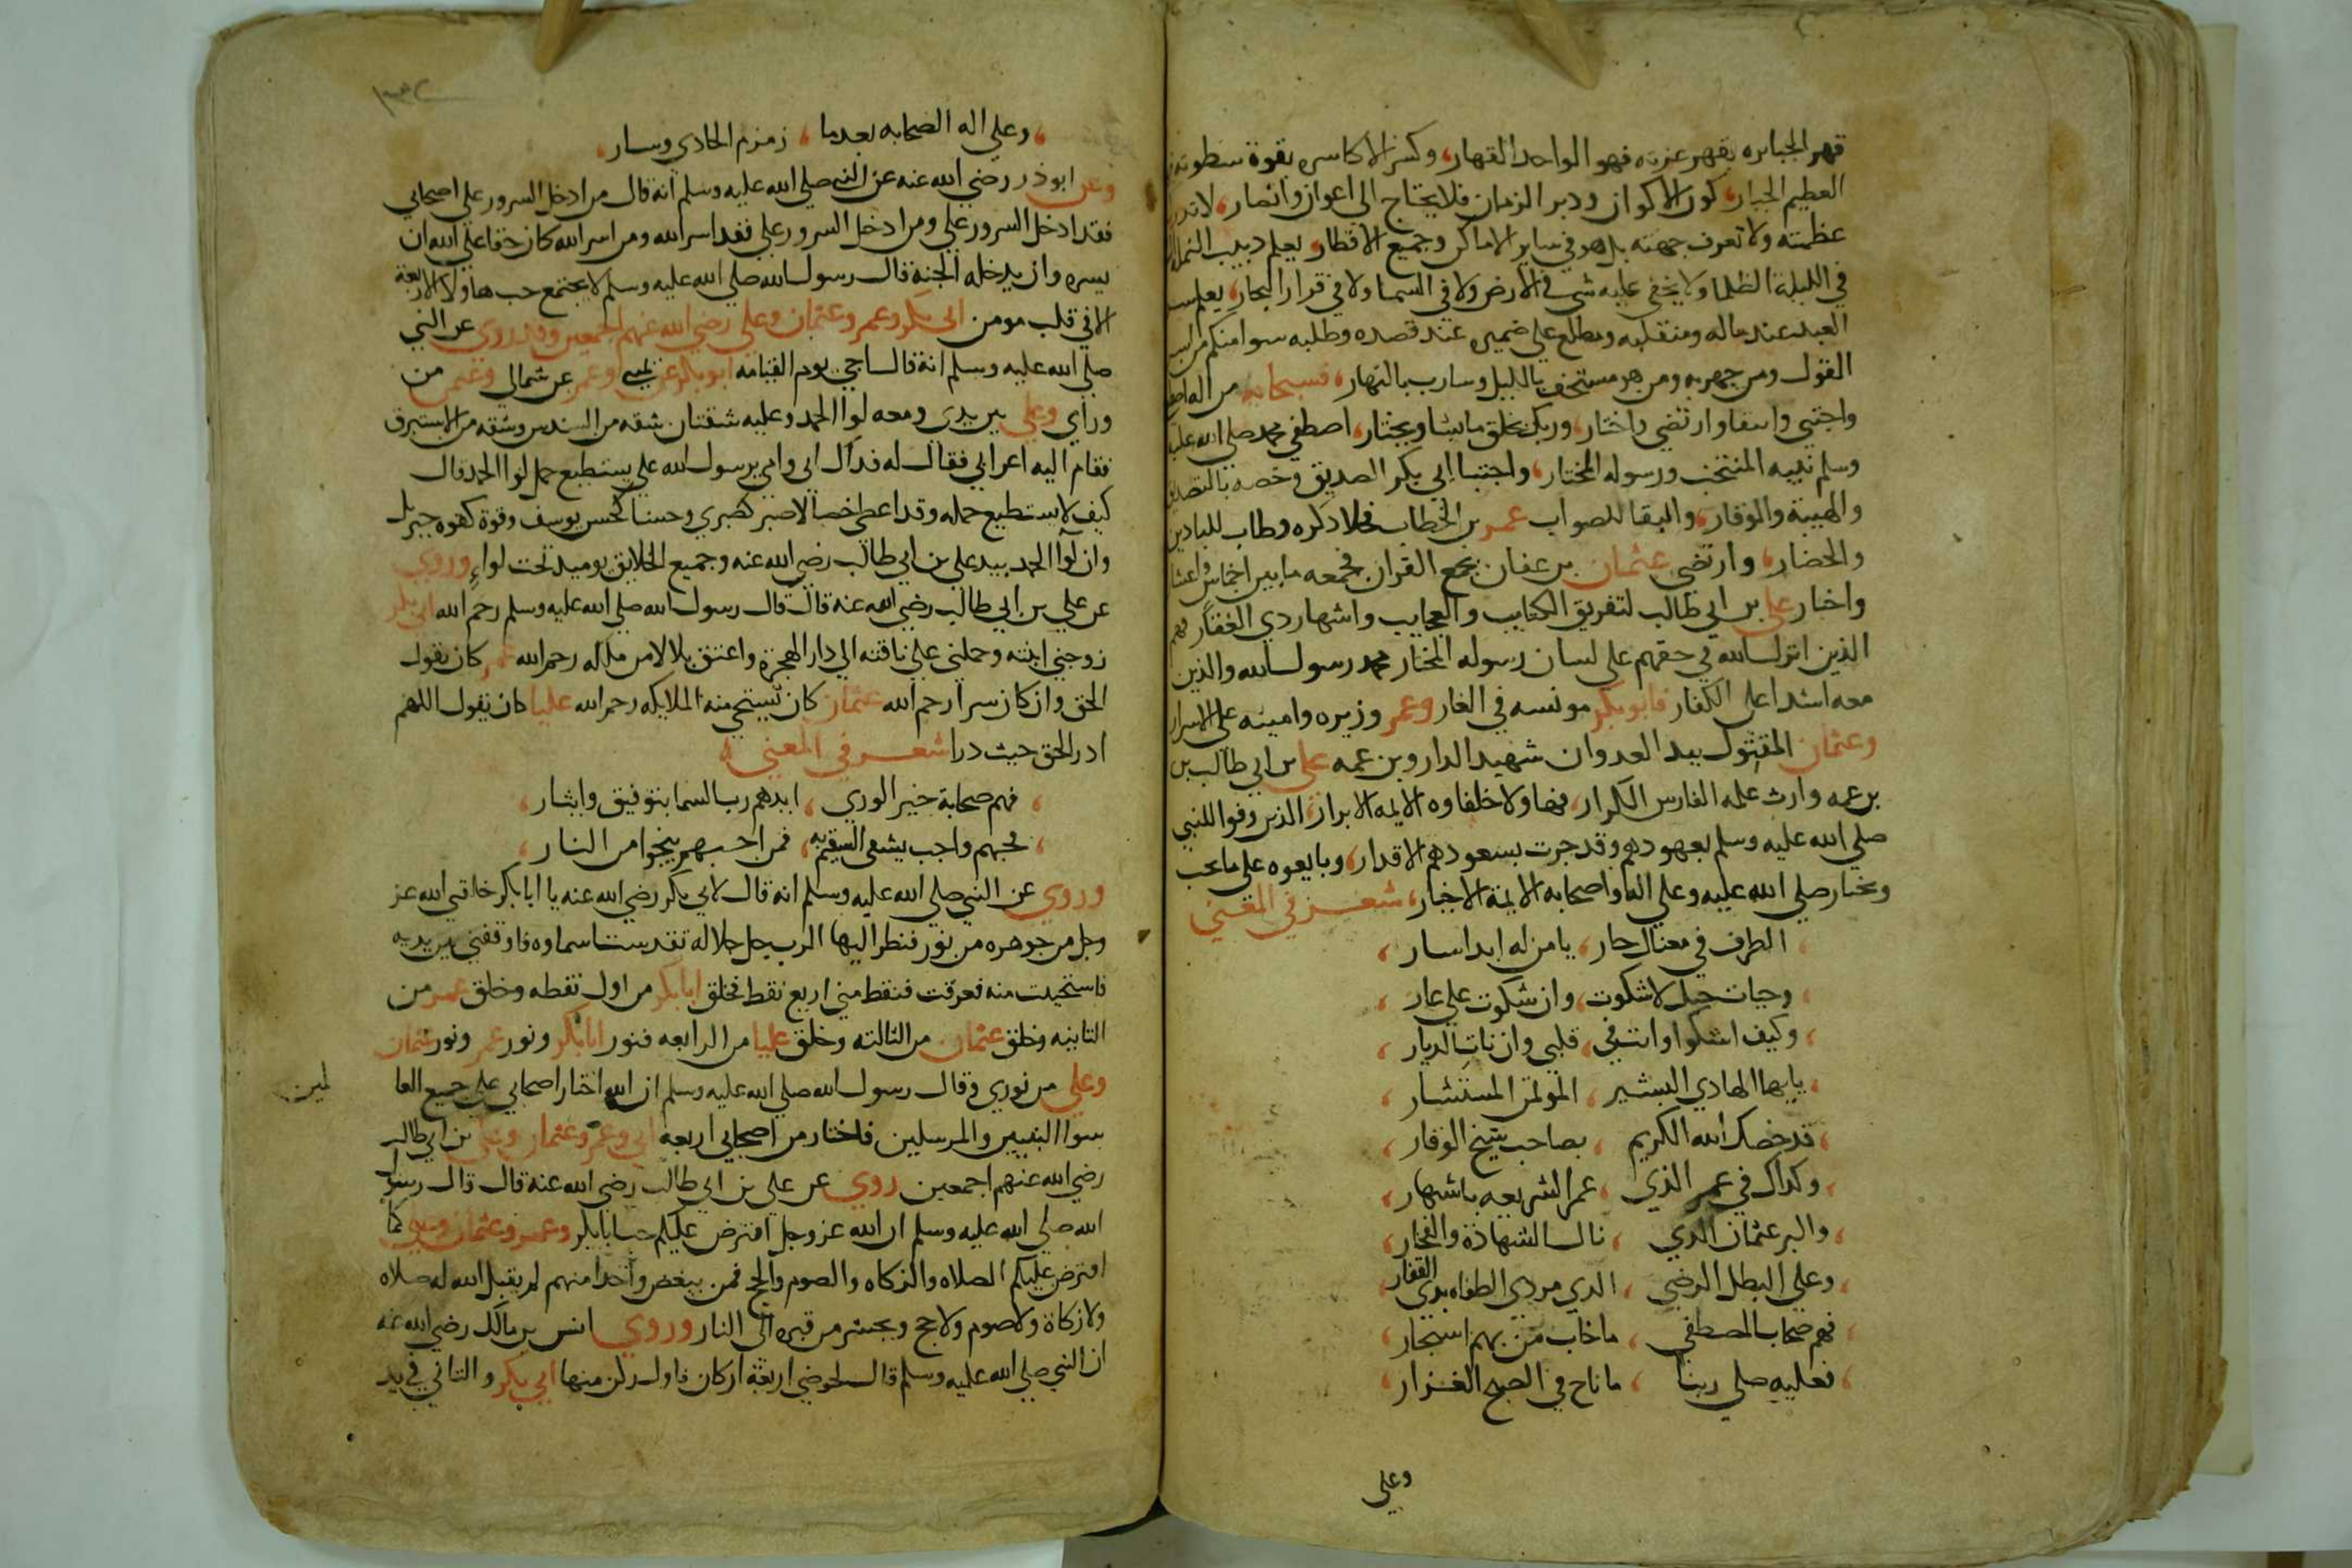 قهر الجبابره بقهر عزته فهو الواحد القهار، وكسر الاكاسره بقوة سطوته
العظيم الجبار، كون الاكوان ودبر الزمان فلا يحتاج الى اعوان وانصار، لا تدرك
عظمته ولا تعرف جهته بل هو في ساير الاماكن وجميع الاقطار، يعلم دبيب النمله
في الليلة الظلما ولا يخفى عليه شي في الارض ولا في السما ولا في قرار البحار، يعلم
العبد عند ماله ومنقلبه ومطلع على ضميره عند قصده وطلبه سوا منكم من اسر
القول ومن جهر به ومن هو مستخف بالليل وسارب بالنهار، فسبحانه من اله
واجتبى وارتضى واختار، وربك يخلق ما يشا ويختار، اصطفى محمد صلى الله عليه
وسلم نبيه المنتخب ورسوله المختار، واجتبا ابي بكر الصديق وخصه بالتصديق
والهيبة والوقار، والبقا للصواب عمر بن الخطاب فحلا ذكره وطاب للبادين
والحضار، وارتضى عثمان بن عفان بجمع القران فجمعه ما بين اخماس واعشار
واختار علي بن ابي طالب لتفريق الكتايب والعجايب واشهار ذي الفقار فهم
الذين انزل الله في حقهم على لسان رسوله المختار محمد رسول الله والذين
معه اشدا على الكفار فابو بكر مونسه في الغار وعمر وزيره وامينه على الاسرار
وعثمان المقتول بيد العدوان شهيد الدار وبن عمه علي بن ابي طالب بن
بن عمه وارث علمه الفارس الكرار، فهاولا خلفاوه الايمه الابرار، الذين وفوا للنبي
صلى الله عليه وسلم بعهودهم وقد جرت بسعودهم الاقدار، وبايعوه على ما يحب
ويختار صلى الله عليه وعلى اله واصحابه الايمة الاخيار، شعر في المعنى
الطرف في معناك حار، يا من له ابدا سار،
وحيات حبك لا شكوت، وان شكوت على عار،
وكيف اشكوا وانت في، قلبي وان نات الديار،
يايها الهادي البشير، الموتمن المستشار،
قد خصك الله الكريم، بصاحب شيخ الوقار،
وكذاك في عمر الذي، عمر الشريعه باشتهار،
والبر عثمان الذي، نال الشهادة والفخار،
وعلي البطل الرضي، الذي مردي الطغاه بذي الفقار
فهم صحاب المصطفى، ما خاب من بهم استجار،
فعليه صلى ربنا، ما ناح في الصبح الهزار،
وعلى
وعلى اله الصحابه بعدما، زمزم الحادي وسار،
وعن ابو ذر رضي الله عنه عن النبي صلى الله عليه وسلم انه قال من ادخل السرور على اصحابي
فقد ادخل السرور علي ومن ادخل السرور علي فقد اسر الله ومن اسر الله كان حقا على الله ان
يسره وان يدخله الجنة قال رسول الله صلى الله عليه وسلم لا يجتمع حب هاولا الاربعة
الا في قلب مومن ابي بكر وعمر وعثمان وعلي رضي الله عنهم اجمعين وقد روي عن النبي
صلى الله عليه وسلم انه قال ساجي يوم القيامه ابو بكر عن يميني وعمر عن شمالي وعثمن من
وراي وعلي بين يدي ومعه لوا الحمد وعليه شقتان شقه من السندس وشقه من الاستبرق
فقام اليه اعرابي فقال له فداك ابي وامي يرسول الله علي يستطيع حمل لوا الحمد قال
كيف لا يستطيع حمله وقد اعطي خصالا صبر كصبري وحسنا كحسن يوسف وقوة كقوه جبريل
وان لوا الحمد بيد علي بن ابي طالب رضي الله عنه وجميع الخلايق يوميد تحت لواءِ وروي
عن علي بن ابي طالب رضي الله عنه قال قال رسول الله صلى الله عليه وسلم رحم الله ابي بكر
زوجني ابنته وحملني على ناقته الى دار الهجرة واعتق بلالا من ماله رحم الله عمر كان يقول
الحق وان كان مرا رحم الله عثمان كان تستحي منه الملايكه رحم الله عليا كان يقول اللهم
ادر الحق حيث درا شعر في المعنى
فهم صحابة خير الورى، ايدهم رب السما بتوفيق وايثار،
فحبهم واجب يشفى السقيم به، فمن احبهم ينجوا من النار،
وروي عن النبي صلى الله عليه وسلم انه قال لابي بكر رضي الله عنه يا ابا بكر خلقني الله عز
وجل من جوهره من نور فنظر اليها الرب جل جلاله تقدست اسماوه فاوقفني بين يديه
فاستحييت منه فعرقت فنقط مني اربع نقط فخلق ابا بكر من اول نقطه وخلق عمر من
الثانيه وخلق عثمان من الثالثه وخلق عليا من الرابعه فنور ابا بكر ونور عمر ونور عثمان
وعلي من نوري وقال رسول الله صلى الله عليه وسلم ان الله اختار اصحابي على جميع العا
لمين
سوا النبيين والمرسلين فاختار من اصحابي اربعه ابي وعمر وعثمان وعلي بن ابي طالب
رضي الله عنهم اجمعين روي عن علي بن ابي طالب رضي الله عنه قال قال رسول
الله صلى الله عليه وسلم ان الله عز وجل افترض عليكم حب ابا بكر وعمر وعثمان وعلي كما
افترض عليكم الصلاه والزكاه والصوم والحج فمن يبغض واحدا منهم لم يقبل الله له صلاه
ولا زكاة ولا صوم ولا حج ويحشر من قبره الى النار وروي انس بن مالك رضي الله عنه
ان النبي صلى الله عليه وسلم قال لحوضي اربعة اركان فاول ركن منها ابي بكر والثاني في يد